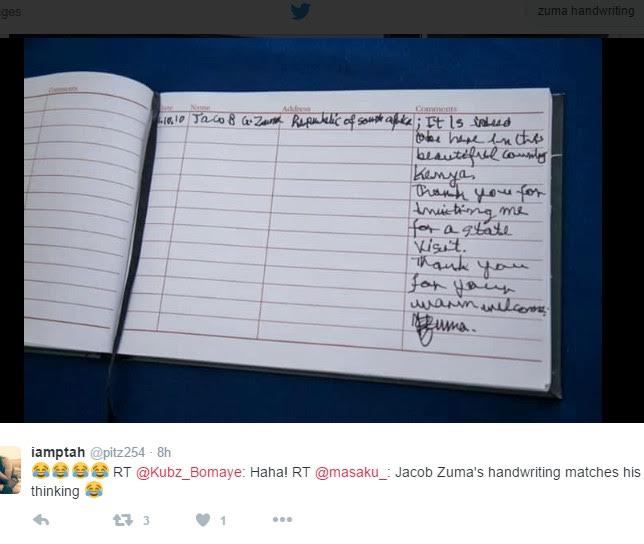 ges
zuma handwriting
Comments
Date Name Address Comments
.10.10 Jacob G. Zuma Republic of south africa; It Is indeed
be here in this
beautiful country
Kenya,
Thank you for
inviting me
for a state
Visit.
Thank you
for your
warm welcome.
Zuma.
iamptah @pitz254 · 8h
😂😂😂😂 RT @Kubz_Bomaye: Haha! RT @masaku_: Jacob Zuma's handwriting matches his
thinking 😂
3 1